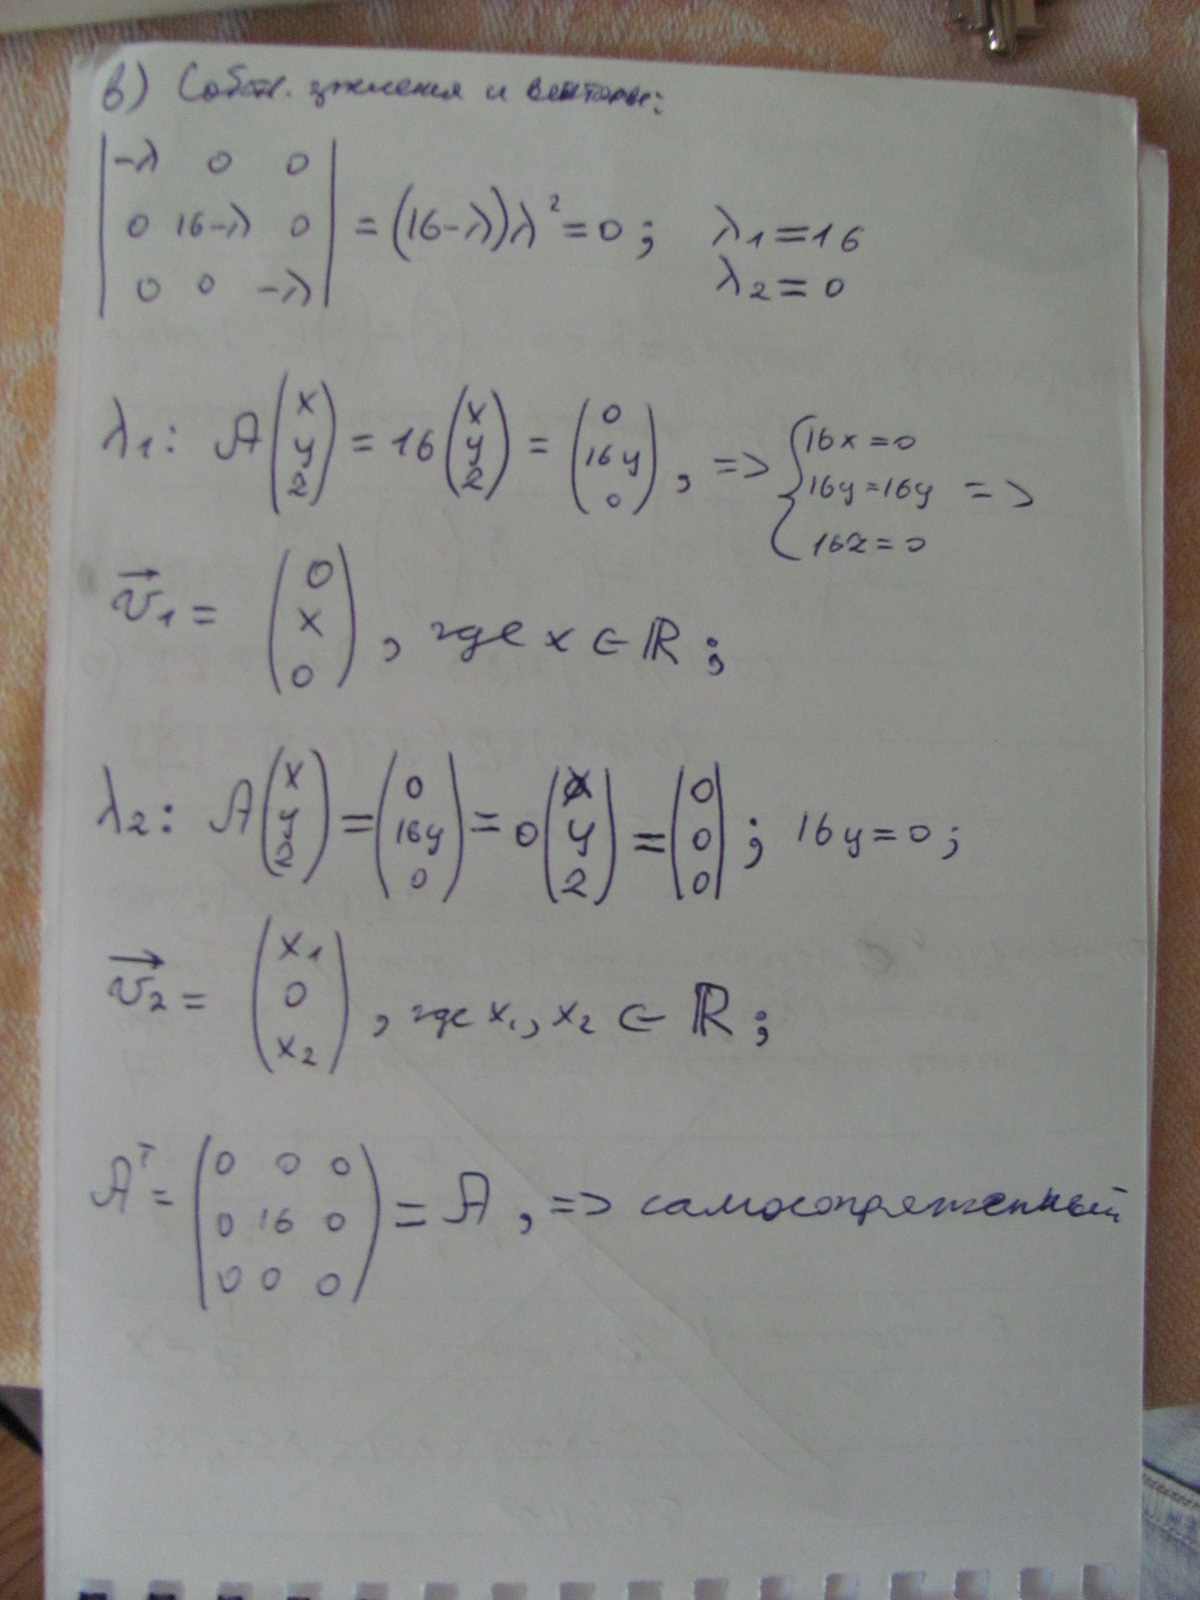 в) Собств. значения и векторы:
|-λ 0 0|
|0 16-λ 0| = (16-λ)λ² = 0; λ1 = 16
|0 0 -λ| λ2 = 0
λ1: A(x y z) = 16(x y z) = (0 16y 0), => {16x = 0
16y = 16y =>
16z = 0
v1 = (0 x 0), где x ∈ ℝ;
λ2: A(x y z) = (0 16y 0) = 0(x y z) = (0 0 0); 16y = 0;
v2 = (x1 0 x2), где x1, x2 ∈ ℝ;
Aᵀ = (0 0 0
0 16 0) = A, => самосопряженный
0 0 0